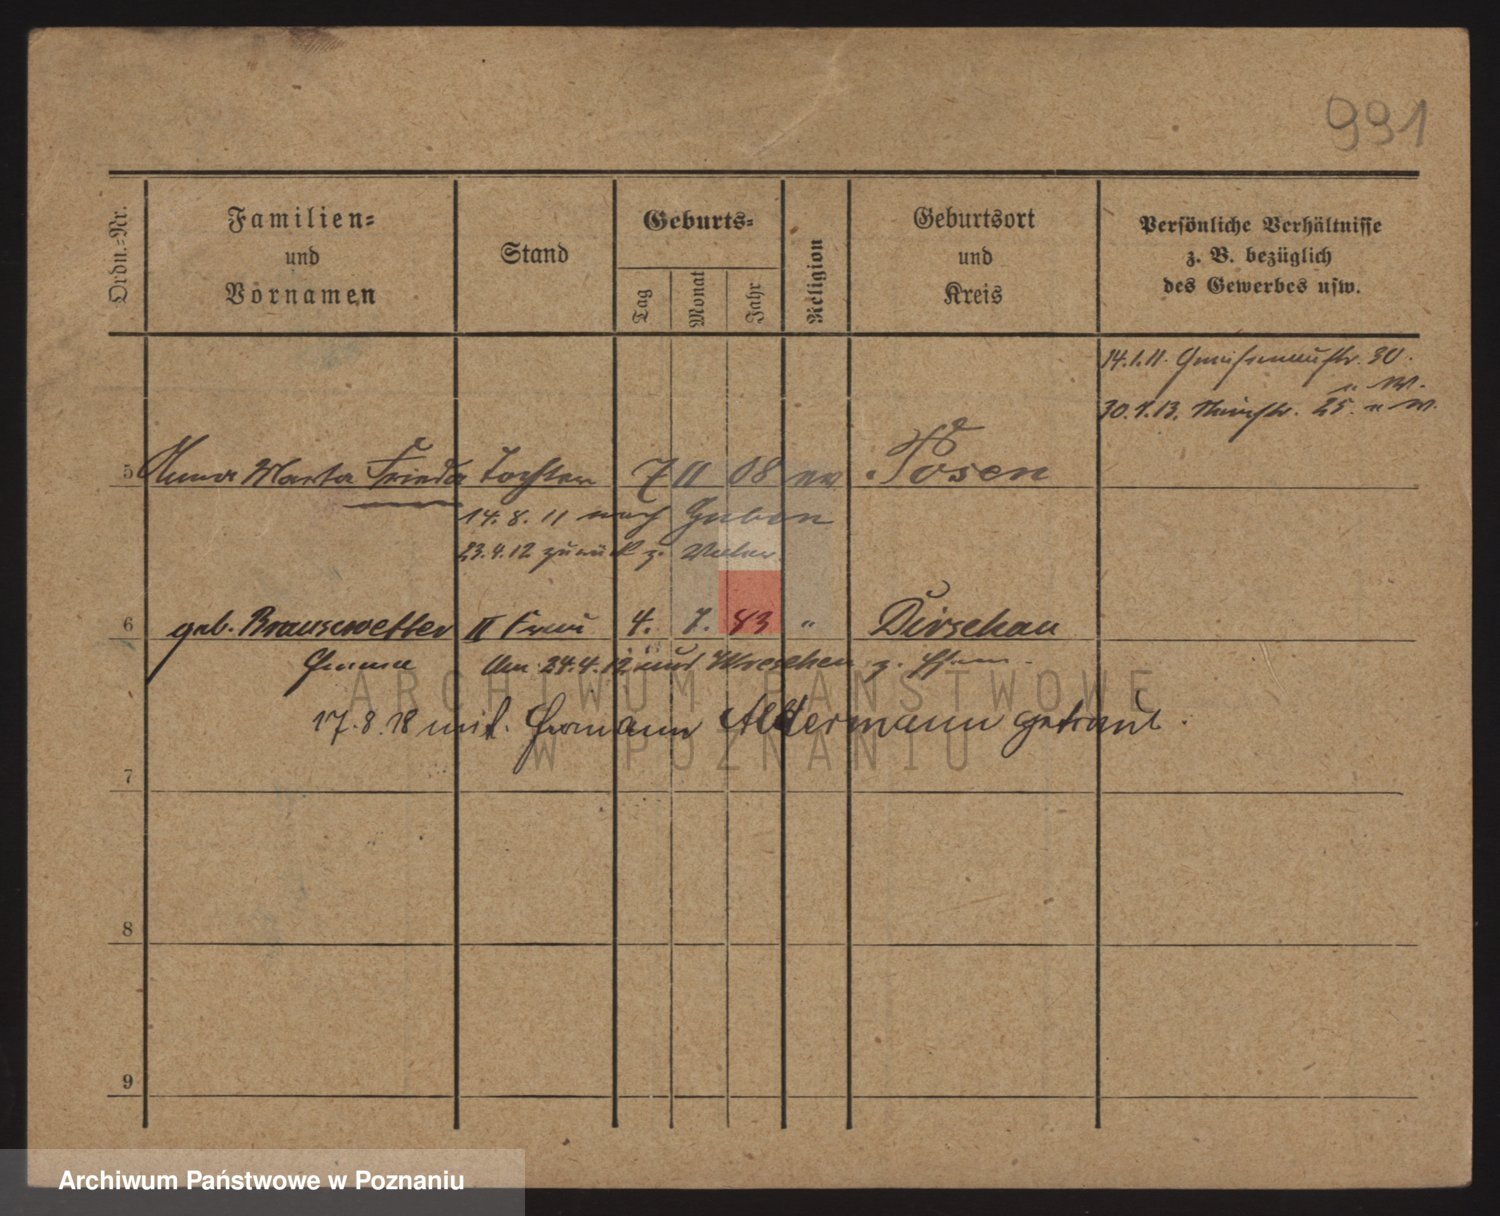 991
Ordn.=Nr.
Familien=
und
Vornamen
Stand
Geburts=
Tag
Monat
Jahr
Religion
Geburtsort
und
Kreis
Persönliche Verhältnisse
z. B. bezüglich
des Gewerbes usw.
14.1.11. Gneisenaustr. 30.
" W.
30.1.13. 25. " W.
5 Anna Marta Frieda Tochter 7 11 08 ev. Posen
14.8.11 nach Guben
23.4.12 zurück z. Vater.
6 geb. Brausewetter II Frau 4. 7. 83 " Dirschau
Emma Am 24.4.12 aus Wreschen z.
17.8.18 mit Hermann Altermann getraut.
7
8
9
ARCHIWUM PAŃSTWOWE
W POZNANIU
Archiwum Państwowe w Poznaniu